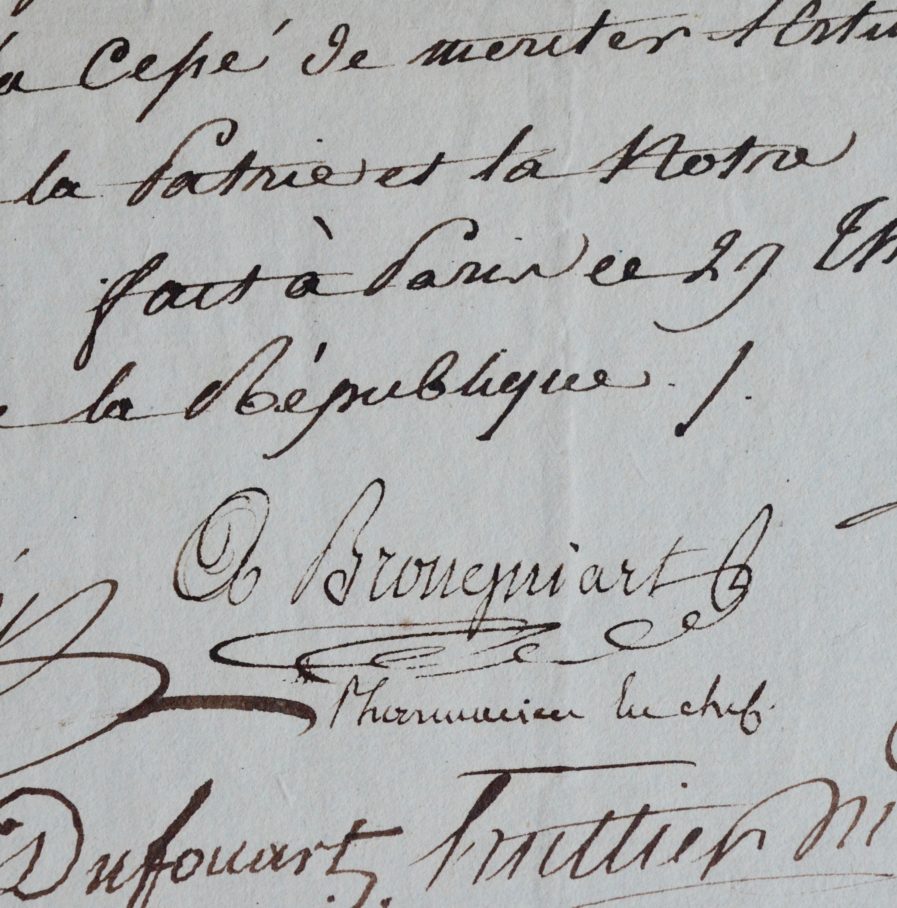 a Cessé de meriter l'Estim
la Patrie et la Notre
fait à Paris ce 27 Th
e la République ./.
A Brongniart
Pharmacien En chef.
Dufouart